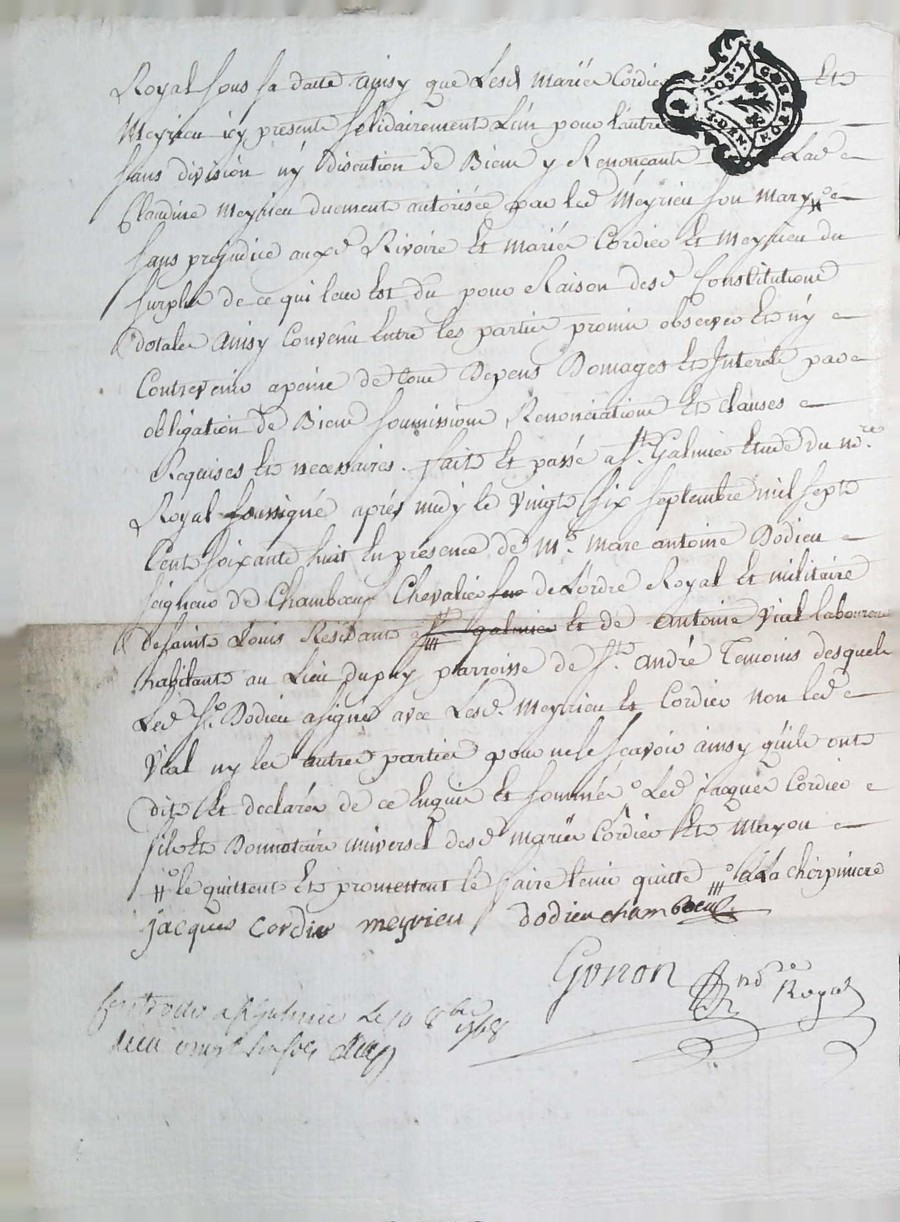 Royal sous sa datte ainsy que Lesd. mariés Cordier Et
Meyrieu icy presents solidairement L'un pour l'autre
sans division ny discution de Biens y Renonçants Lad.
Claudine Meyrieu duement autorisée par led. Meyrieu son mary
sans prejudice auxd. Rivoire Et mariés Cordier Et meyrieu du
surplus de ce qui leur Est du pour Raison desd. Constitutions
dotales Ainsy Convenu Entre les parties promis observer Et ny
Contrevenir a peine de tous Depens Domages Et Interets par
obligation de Biens soumissions Renonciations Et clauses
Requises Et necessaires. fait Et passé a St. Galmier Etude du nre.
Royal soussigné après midy le vingt six septembre mil sept
Cent soixante huit En présence de Mr. Marc antoine Dodieu
seigneur de Chambœuf Chevalier de L'ordre Royal Et militaire
de saint Louis Residant a St. galmier Et de Antoine Vial laboureur
habitant au Lieu dupuy parroisse de St. André Temoins desquels
Led. Sr. Dodieu a signé avec Lesd. Meyrieu Et Cordier non led.
Vial ny les autres parties pour ne le sçavoir ainsy qu'ils ont
dit Et declarés de ce Enquis Et sommés Led. jacques Cordier
fils Et Donnataire universel desd. mariés Cordier Et Mayou
le quittent Et promettent le faire tenir quitte a La chirpiniere
jacques cordier meyrieu Dodieu chambœuf
Gonon nore Royal
A St Galmier Le 10 8bre 1768